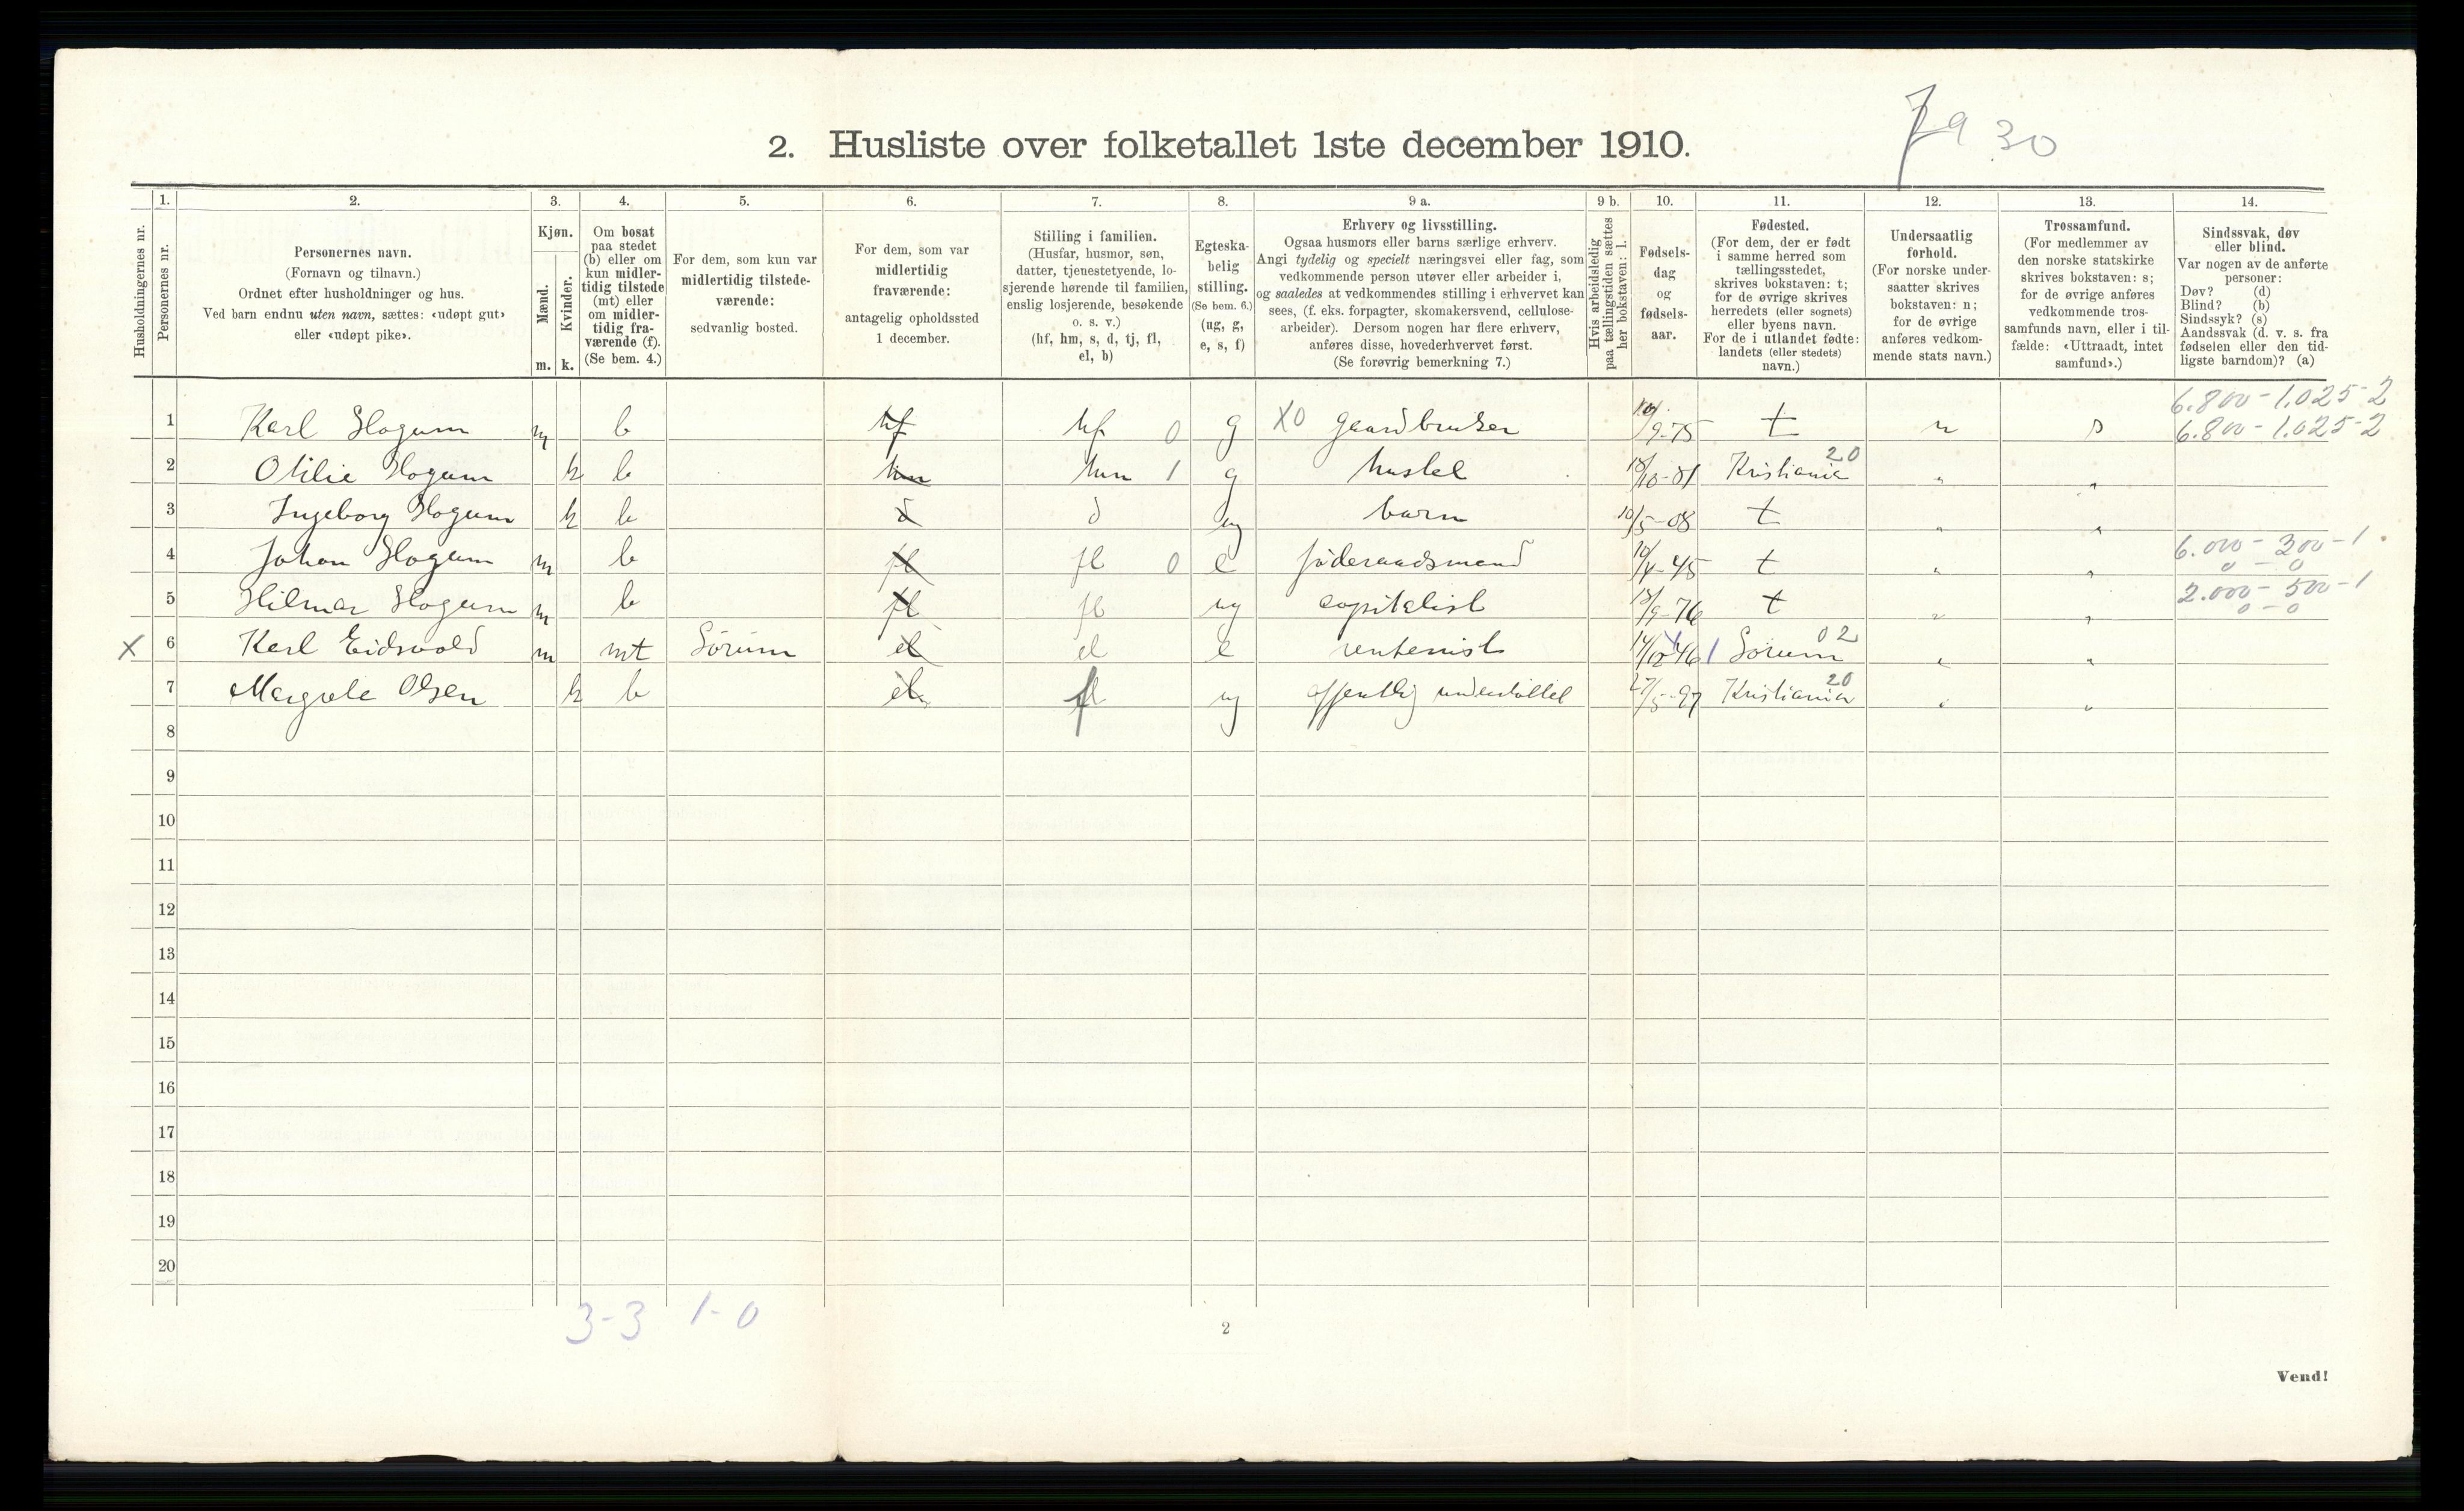 2. Husliste over folketallet 1ste december 1910.
30
1. 2. 3. 4. 5. 6. 7. 8. 9 a. 9 b. 10. 11. 12. 13. 14.
Husholdningernes nr.
Personernes nr.
Personernes navn.
(Fornavn og tilnavn.)
Ordnet efter husholdninger og hus.
Ved barn endnu uten navn, sættes: «udøpt gut»
eller «udøpt pike».
Kjøn.
Mænd.
Kvinder.
m. k.
Om bosat
paa stedet
(b) eller om
kun midler-
tidig tilstede
(mt) eller
om midler-
tidig fra-
værende (f).
(Se bem. 4.)
For dem, som kun var
midlertidig tilstede-
værende:
sedvanlig bosted.
For dem, som var
midlertidig
fraværende:
antagelig opholdssted
1 december.
Stilling i familien.
(Husfar, husmor, søn,
datter, tjenestetyende, lo-
sjerende hørende til familien,
enslig losjerende, besøkende
o. s. v.)
(hf, hm, s, d, tj, fl,
el, b)
Egteska-
belig
stilling.
(Se bem. 6.)
(ug, g,
e, s, f)
Erhverv og livsstilling.
Ogsaa husmors eller barns særlige erhverv.
Angi tydelig og specielt næringsvei eller fag, som
vedkommende person utøver eller arbeider i,
og saaledes at vedkommendes stilling i erhvervet kan
sees, (f. eks. forpagter, skomakersvend, cellulose-
arbeider). Dersom nogen har flere erhverv,
anføres disse, hovederhvervet først.
(Se forøvrig bemerkning 7.)
Hvis arbeidsledig
paa tællingstiden sættes
her bokstaven: l.
Fødsels-
dag
og
fødsels-
aar.
Fødested.
(For dem, der er født
i samme herred som
tællingsstedet,
skrives bokstaven: t;
for de øvrige skrives
herredets (eller sognets)
eller byens navn.
For de i utlandet fødte:
landets (eller stedets)
navn.)
Undersaatlig
forhold.
(For norske under-
saatter skrives
bokstaven: n;
for de øvrige
anføres vedkom-
mende stats navn.)
Trossamfund.
(For medlemmer av
den norske statskirke
skrives bokstaven: s;
for de øvrige anføres
vedkommende tros-
samfunds navn, eller i til-
fælde: «Uttraadt, intet
samfund».)
Sindssvak, døv
eller blind.
Var nogen av de anførte
personer:
Døv? (d)
Blind? (b)
Sindssyk? (s)
Aandssvak (d. v. s. fra
fødselen eller den tid-
ligste barndom)? (a)
6.800 - 1.025-2
1 Karl Hogum m b hf hf 0 g X0 gaardbruker 10/9-75 t n s 6.800 - 1.025-2
2 Otilie Hogum k b hm hm 1 g hustel 18/10-81 Kristiania 20 " "
3 Ingeborg Hogum k b d d ug barn 10/5-08 t " "
6.000 - 300 - 1
4 Johan Hogum m b fl fl 0 e føderaadsmand 10/4-45 t " " 0 - 0
2.000 - 500 - 1
5 Hilmar Hogum m b fl fl ug capitalist 18/9-76 t " " 0 - 0
X 6 Karl Eidsvold m mt Sørum el el e rentenist 14/12 46 1 Sørum 02 " "
7 Margrete Olsen k b el fl ug offentlig understøttet 27/5-97 Kristiania 20 " "
8
9
10
11
12
13
14
15
16
17
18
19
20
3-3 1-0
2
Vend!